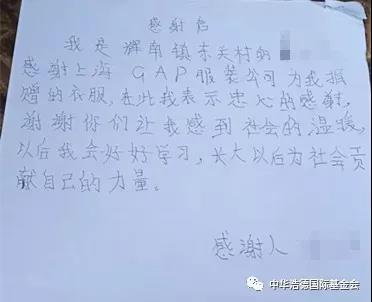 感谢启
我是辉南镇东关村的
感谢上海GAP服装公司为我捐
赠的衣服，在此我表示忠心的感谢，
谢谢你们让我感到社会的温暖，
以后我会好好学习，长大以后为社会贡
献自己的力量。
感谢人
中华浩德国际基金会